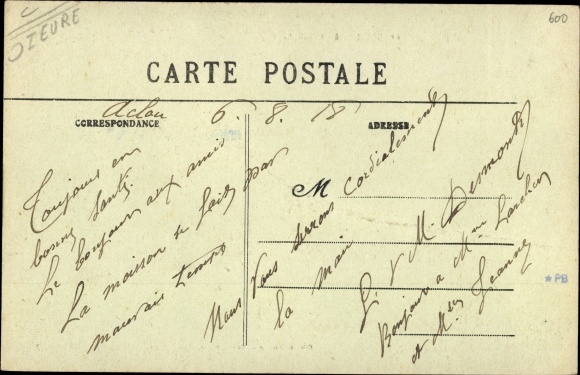 EURE
600
CARTE POSTALE
Aclou 6. 8. 18
CORRESPONDANCE
ADRESSE
M
Toujours en
bonne santé
Le bonjour aux amis
La maison se fait par
mauvais temps
Nous vous serrons cordialement
la main
G. V M. Desmonts
Bonjour à Mme
et Mr Jeanne
* PB